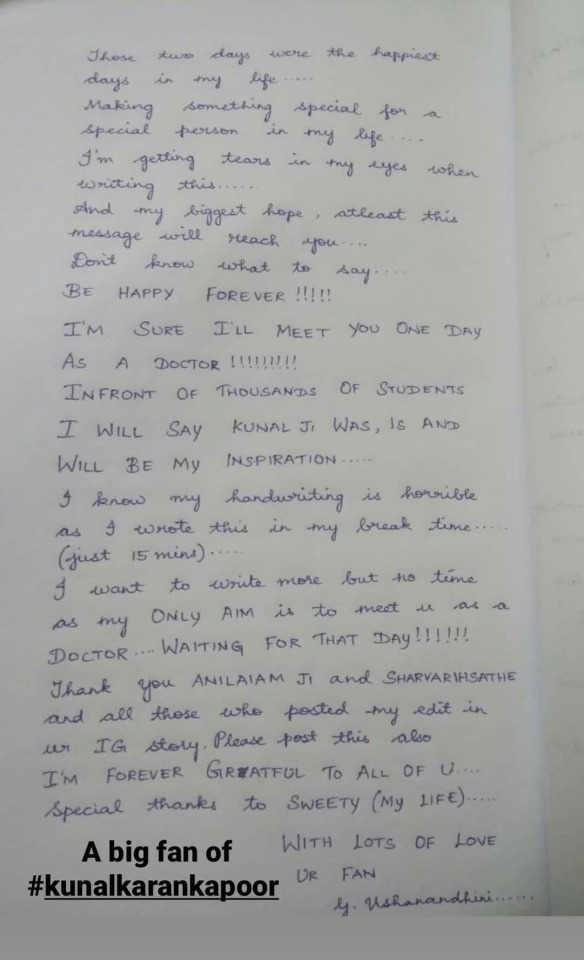 Those two days were the happiest
days in my life.....
Making something special for a
special person in my life....
I'm getting tears in my eyes when
writing this.....
And my biggest hope, atleast this
message will reach you....
Don't know what to say....
BE HAPPY FOREVER !!!!!
I'M SURE I'LL MEET YOU ONE DAY
AS A DOCTOR !!!!!!!!!
INFRONT OF THOUSANDS OF STUDENTS
I WILL SAY KUNAL JI WAS, IS AND
WILL BE MY INSPIRATION.....
I know my handwriting is horrible
as I wrote this in my break time.....
(just 15 mins).....
I want to write more but no time
as my ONLY AIM is to meet u as a
DOCTOR.... WAITING FOR THAT DAY!!!!!!
Thank you ANILAIAM JI and SHARVARIHSATHE
and all those who posted my edit in
ur IG story. Please post this also
I'M FOREVER GREATFUL TO ALL OF U....
Special thanks to SWEETY (MY LIFE).....
WITH LOTS OF LOVE
UR FAN
G. Ushanandhini......
A big fan of
#kunalkarankapoor